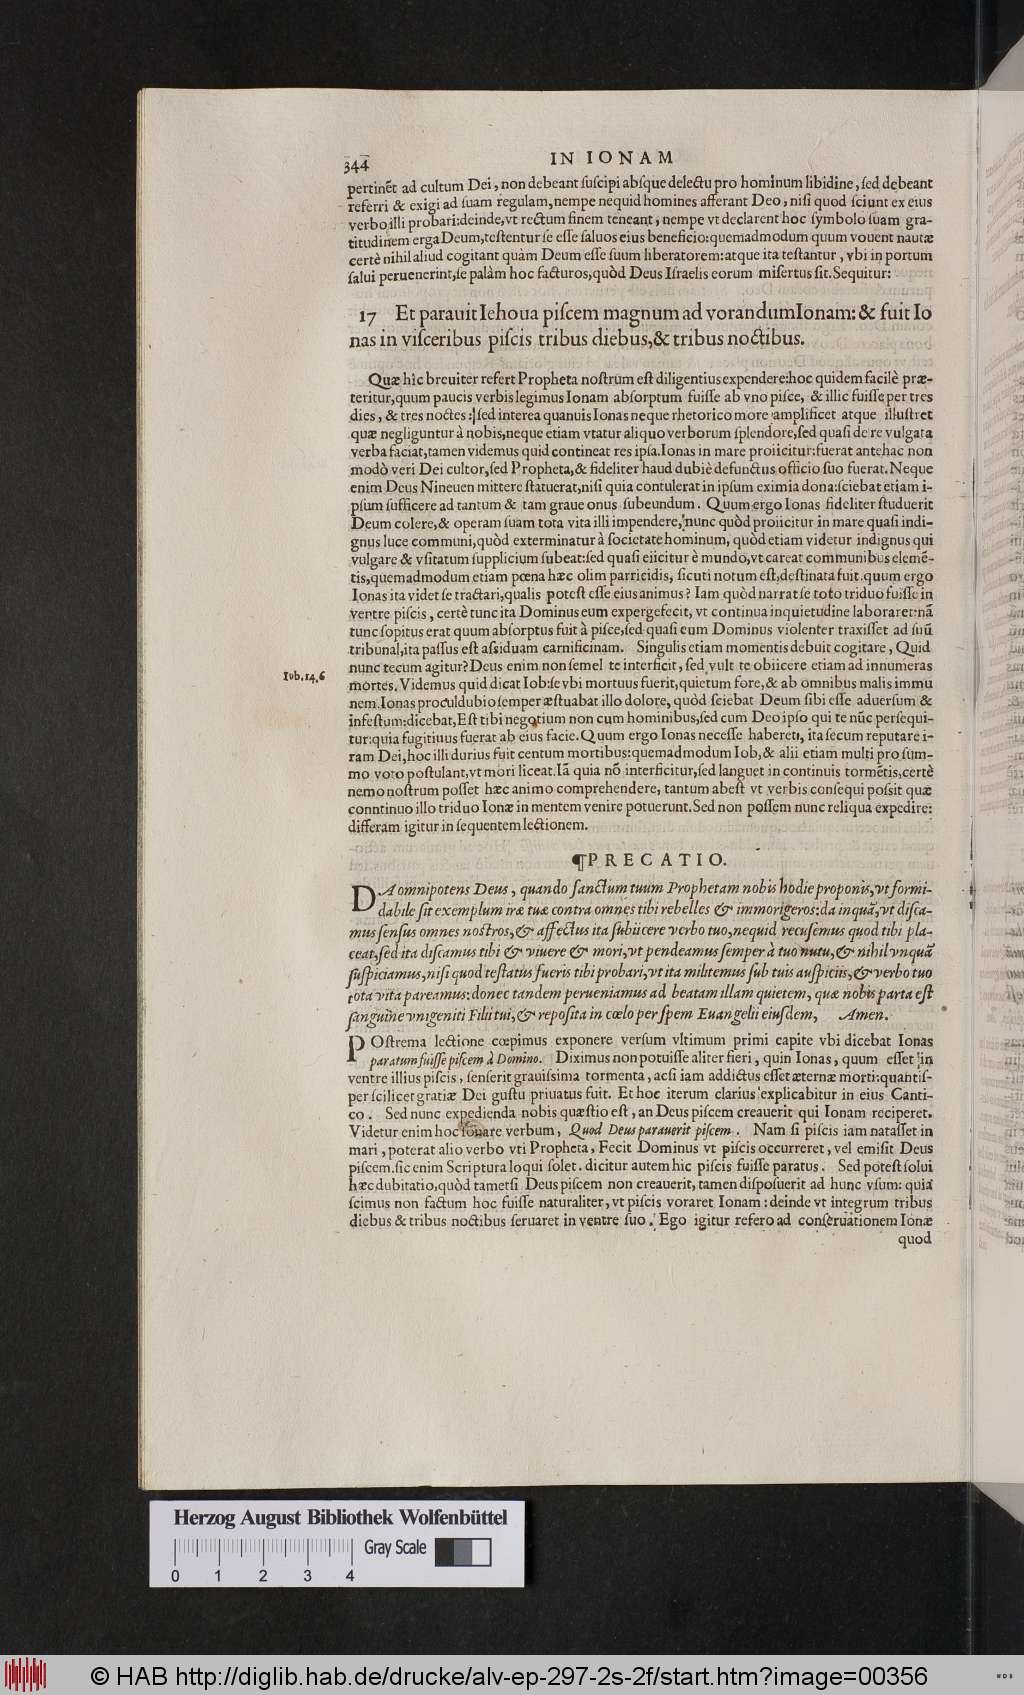 344
IN IONAM
pertinẽt ad cultum Dei, non debeant ſuſcipi abſque delectu pro hominum libidine, ſed debeant
referri & exigi ad ſuam regulam, nempe nequid homines afferant Deo, niſi quod ſciunt ex eius
verbo illi probari: deinde, vt rectum finem teneant, nempe vt declarent hoc ſymbolo ſuam gra-
titudinem erga Deum, teſtentur ſe eſſe ſaluos eius beneficio: quemadmodum quum vouent nautæ
certè nihil aliud cogitant quàm Deum eſſe ſuum liberatorem: atque ita teſtantur, vbi in portum
ſalui peruenerint, ſe palàm hoc facturos, quòd Deus Iſraelis eorum miſertus ſit. Sequitur:
17 Et parauit Iehoua piſcem magnum ad vorandum Ionam: & fuit Io
nas in viſceribus piſcis tribus diebus, & tribus noctibus.
Quæ hic breuiter refert Propheta noſtrum eſt diligentius expendere: hoc quidem facilè præ-
teritur, quum paucis verbis legimus Ionam abſorptum fuiſſe ab vno piſce, & illic fuiſſe per tres
dies, & tres noctes: ſed interea quanuis Ionas neque rhetorico more amplificet atque illuſtret
quæ negliguntur à nobis, neque etiam vtatur aliquo verborum ſplendore, ſed quaſi de re vulgata
verba faciat, tamen videmus quid contineat res ipſa. Ionas in mare proiicitur: fuerat antehac non
modò veri Dei cultor, ſed Propheta, & fideliter haud dubiè defunctus officio ſuo fuerat. Neque
enim Deus Nineuen mittere ſtatuerat, niſi quia contulerat in ipſum eximia dona: ſciebat etiam i-
pſum ſufficere ad tantum & tam graue onus ſubeundum. Quum ergo Ionas fideliter ſtuduerit
Deum colere, & operam ſuam tota vita illi impendere, nunc quòd proiicitur in mare quaſi indi-
gnus luce communi, quòd exterminatur à ſocietate hominum, quòd etiam videtur indignus qui
vulgare & vſitatum ſupplicium ſubeat: ſed quaſi eiicitur è mundo, vt careat communibus elemẽ-
tis, quemadmodum etiam pœna hæc olim parricidis, ſicuti notum eſt, deſtinata fuit. quum ergo
Ionas ita videt ſe tractari, qualis poteſt eſſe eius animus? Iam quòd narrat ſe toto triduo fuiſſe in
ventre piſcis, certè tunc ita Dominus eum expergefecit, vt continua inquietudine laboraret: nã
tunc ſopitus erat quum abſorptus fuit à piſce, ſed quaſi eum Dominus violenter traxiſſet ad ſuũ
tribunal, ita paſſus eſt aſsiduam carnificinam. Singulis etiam momentis debuit cogitare, Quid
nunc tecum agitur? Deus enim non ſemel te interficit, ſed vult te obiicere etiam ad innumeras
Iob.14,6
mortes. Videmus quid dicat Iob: ſe vbi mortuus fuerit, quietum fore, & ab omnibus malis immu
nem. Ionas proculdubio ſemper æſtuabat illo dolore, quòd ſciebat Deum ſibi eſſe aduerſum &
infeſtum: dicebat, Eſt tibi negotium non cum hominibus, ſed cum Deo ipſo qui te nũc perſequi-
tur: quia fugitiuus fuerat ab eius facie. Quum ergo Ionas neceſſe haberet, ita ſecum reputare i-
ram Dei, hoc illi durius fuit centum mortibus: quemadmodum Iob, & alii etiam multi pro ſum-
mo voto poſtulant, vt mori liceat. Iã quia nõ interficitur, ſed languet in continuis tormẽtis, certè
nemo noſtrum poſſet hæc animo comprehendere, tantum abeſt vt verbis conſequi poſsit quæ
conntinuo illo triduo Ionæ in mentem venire potuerunt. Sed non poſſem nunc reliqua expedire:
differam igitur in ſequentem lectionem.
¶PRECATIO.
DA omnipotens Deus, quando ſanctum tuum Prophetam nobis hodie proponis, vt formi-
dabile ſit exemplum iræ tuæ contra omnes tibi rebelles & immorigeros: da inquã, vt diſca-
mus ſenſus omnes noſtros, & affectus ita ſubiicere verbo tuo, nequid recuſemus quod tibi pla-
ceat, ſed ita diſcamus tibi & viuere & mori, vt pendeamus ſemper à tuo nutu, & nihil vnquã
ſuſpiciamus, niſi quod teſtatus fueris tibi probari, vt ita militemus ſub tuis auſpiciis, & verbo tuo
tota vita pareamus: donec tandem perueniamus ad beatam illam quietem, quæ nobis parta eſt
ſanguine vnigeniti Filii tui, & repoſita in cœlo per ſpem Euangelii eiuſdem, Amen.
POſtrema lectione cœpimus exponere verſum vltimum primi capite vbi dicebat Ionas
paratum fuiſſe piſcem à Domino. Diximus non potuiſſe aliter fieri, quin Ionas, quum eſſet in
ventre illius piſcis, ſenſerit grauiſsima tormenta, acſi iam addictus eſſet æternæ morti: quantiſ-
per ſcilicet gratiæ Dei guſtu priuatus fuit. Et hoc iterum clarius explicabitur in eius Canti-
co. Sed nunc expedienda nobis quæſtio eſt, an Deus piſcem creauerit qui Ionam reciperet.
Videtur enim hoc ſonare verbum, Quod Deus parauerit piſcem. Nam ſi piſcis iam nataſſet in
mari, poterat alio verbo vti Propheta, Fecit Dominus vt piſcis occurreret, vel emiſit Deus
piſcem. ſic enim Scriptura loqui ſolet. dicitur autem hic piſcis fuiſſe paratus. Sed poteſt ſolui
hæc dubitatio, quòd tametſi Deus piſcem non creauerit, tamen diſpoſuerit ad hunc vſum: quia
ſcimus non factum hoc fuiſſe naturaliter, vt piſcis voraret Ionam: deinde vt integrum tribus
diebus & tribus noctibus ſeruaret in ventre ſuo. Ego igitur refero ad conſeruationem Ionæ
quod
Herzog August Bibliothek Wolfenbüttel
Gray Scale
0 1 2 3 4
© HAB http://diglib.hab.de/drucke/alv-ep-297-2s-2f/start.htm?image=00356